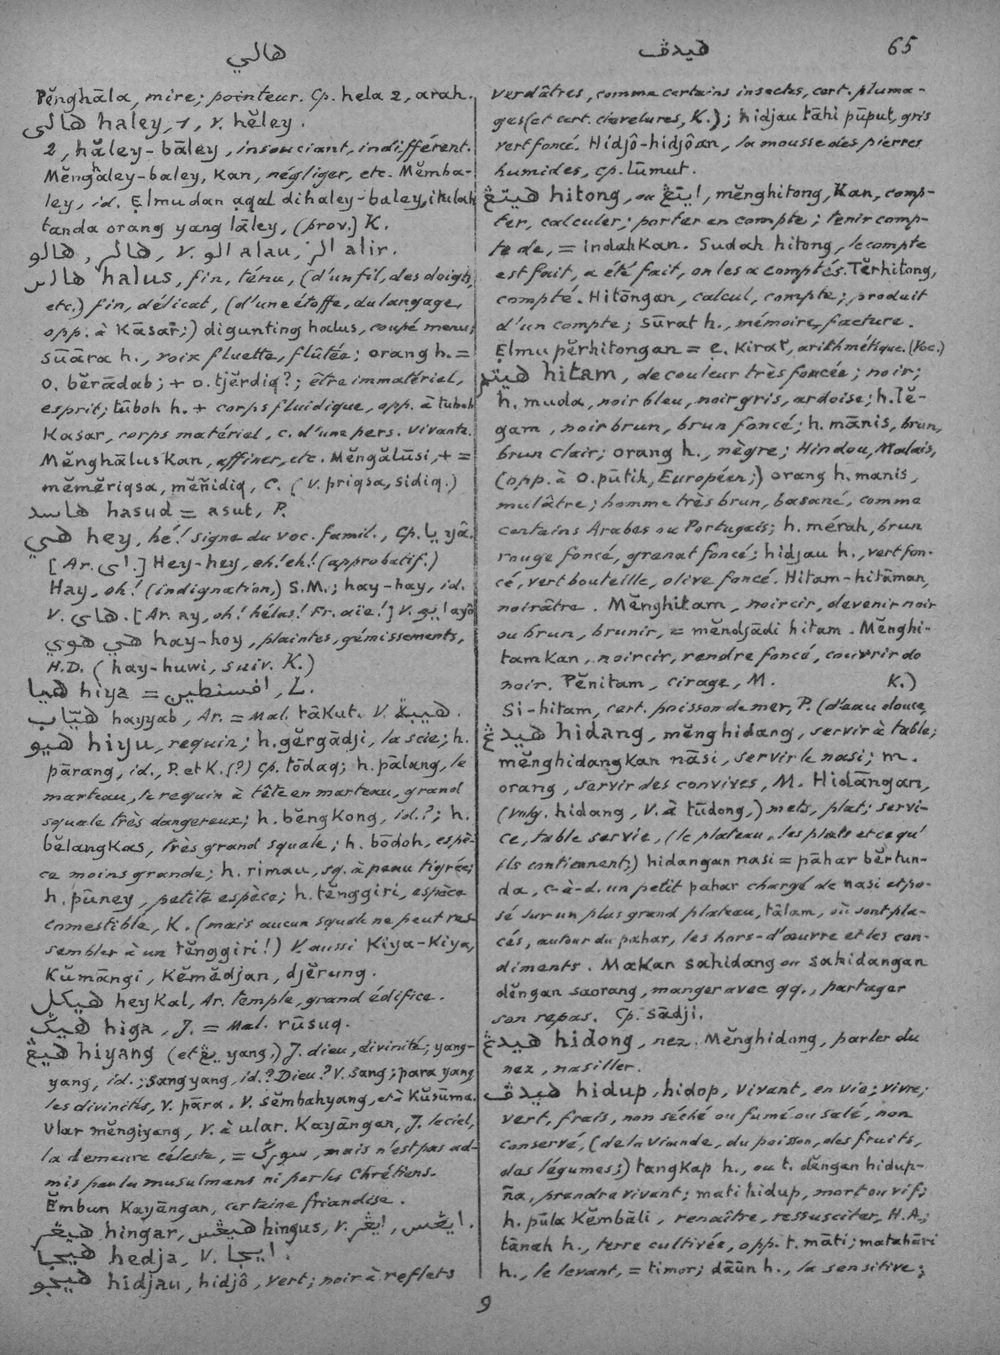 هالي
هيدڤ 65
Pĕnghāla, mire; pointeur. Cp. hela 2, arah.
هالي haley, 1, v. hĕley.
2, hăley-bāley, insouciant, indifférent.
Mĕnghaley-baley, kan, négliger, etc. Mĕmba-
ley, id. Ẹlmu dan ạqal dihaley-baley, itulah
tanda orang yang lāley, (prov.) K.
هالو , هالر, v. الو alau, الر alir.
هالس halus, fin, ténu, (d'un fil, des doigts,
etc.) fin, délicat, (d'une étoffe, du langage,
opp. à Kāsar;) digunting halus, coupé menu;
sūāra h., voix fluette, flûtée; orang h. =
o. bĕrādab; + o. tjĕrdiq?; être immatériel,
esprit; tūboh h. + corps fluidique, opp. à tuboh
Kasar, corps matériel, c. d'une pers. vivante.
Mĕnghāluskan, affiner, etc. Mĕngălūsi, + =
mĕmĕriqsa, mĕñidiq, C. (v. priqsa, sidiq.)
هاسد hasud = asut, P.
هي hey, hé! signe du voc. famil., Cp. يا yâ.
[Ar. اى.] Hey-hey, eh! eh! (approbatif.)
Hay, oh! (indignation,) S.M.; hay-hay, id.
v. هاى. [Ar. ay, oh! hélas! Fr. aïe!] v. ايو ayô
هي هوي hay-hoy, plaintes, gémissements,
H.D. (hay-huwi, suiv. K.)
هيا hiya = افسنطين, L.
هيّاب hayyab, Ar. = Mal. tākut. V. هيبة.
هيو hiyu, requin; h. gĕrgādji, la scie; h.
pārang, id., P. et K. (?) Cp. tōdaq; h. pālang, le
marteau, le requin à tête en marteau, grand
squale très dangereux; h. bĕngkong, id.?; h.
bĕlangkas, très grand squale; h. bōdoh, espè-
ce moins grande; h. rimau, sq. à peau tigrée;
h. pūney, petite espèce; h. tĕnggiri, espèce
comestible, K. (mais aucun squale ne peut res-
sembler à un tĕnggiri!) V. aussi Kiya-Kiya,
Kŭmāngi, Kĕmĕdjan, djĕrung.
هيكل heykal, Ar. temple, grand édifice.
هيݢ higa, J. = Mal. rūsuq.
هيڠ hiyang (et يڠ yang.) J. dieu, divinité; yang-
yang, id.; sang yang, id.? Dieu? V. sang; para yang
les divinités, v. pāra. V. sĕmbahyang, et à Kŭsūma.
Ular mĕngiyang, v. à ular. Kayāngan, J. le ciel,
la demeure céleste, = سورݢ, mais n'est pas ad-
mis par les musulmans ni par les Chrétiens.
Ĕmbun Kayāngan, certaine friandise.
هيڠر hingar, هيڠس hingus, v. ايڠر, ايڠس.
هيجا hedja, V. ايجا.
هيجو hidjau, hidjô, vert; noir à reflets
verdâtres, comme certains insectes, cert. pluma-
ges (et cert. chevelures, K.); hidjau tāhi pūput, gris
vert foncé. Hidjô-hidjôan, la mousse des pierres
humides, cp. lūmut.
هيتڠ hitong, ou ايتڠ, mĕnghitong, kan, comp-
ter, calculer; porter en compte; tenir comp-
te de, = indahkan. Sudah hitong, le compte
est fait, a été fait, on les a comptés. Tĕrhitong,
compté. Hitōngan, calcul, compte; produit
d'un compte; sūrat h., mémoire, facture.
Ẹlmu pĕrhitongan = ẹ. Kirat, arithmétique. (Voc.)
هيتم hitam, de couleur très foncée; noir;
h. muda, noir bleu, noir gris, ardoise; h. lĕ-
gam, noir brun, brun foncé; h. mānis, brun,
brun clair; orang h., nègre; Hindou, Malais,
(opp. à o. pūtih, Européen;) orang h. manis,
mulâtre; homme très brun, basané, comme
certains Arabes ou Portugais; h. mérah, brun
rouge foncé, grenat foncé; hidjau h., vert fon-
cé, vert bouteille, olive foncé. Hitam-hitāman,
noirâtre. Mĕnghitam, noircir, devenir noir
ou brun, brunir, = mĕndjādi hitam. Mĕnghi-
tamkan, noircir, rendre foncé, couvrir de
noir. Pĕnitam, cirage, M. K.)
Si-hitam, cert. poisson de mer, P. (d'eau douce,
هيدڠ hidang, mĕnghidang, servir à table;
mĕnghidangkan nāsi, servir le nasi; m.
orang, servir des convives, M. Hidāngan,
(vulg. hidang, V. à tūdong,) mets, plat; servi-
ce, table servie, (le plateau, les plats et ce qu'
ils contiennent;) hidangan nasi = pāhar bĕrtun-
da, c-à-d. un petit pahar chargé de nasi et po-
sé sur un plus grand plateau, tālam, où sont pla-
cés, autour du pahar, les hors-d'œuvre et les con-
diments. Makan sahidang ou sahidangan
dĕngan saorang, manger avec qq., partager
son repas. Cp. sādji.
هيدڠ hidong, nez. Mĕnghidong, parler du
nez, nasiller.
هيدڤ hidup, hidop, vivant, en vie; vivre;
vert, frais, non séché ou fumé ou salé, non
conservé, (de la viande, du poisson, des fruits,
des légumes;) tangkap h., ou t. dĕngan hidup-
ña, prendre vivant; mati hidup, mort ou vif;
h. pūla Kĕmbāli, renaître, ressusciter, H.A.;
tānah h., terre cultivée, opp. t. māti; matahāri
h., le levant, = timor; dāūn h., la sensitive;
9